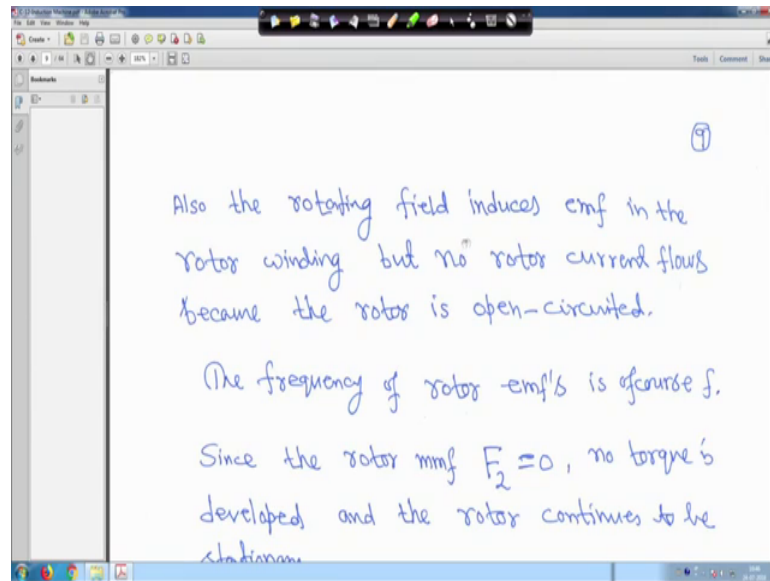 E-12-Induction Machine.pdf - Adobe Acrobat Pro
File Edit View Window Help
Create
9 / 94
182%
Tools Comment
Bookmarks
9
Also the rotating field induces emf in the
rotor winding but no rotor current flows
became the rotor is open-circuited.
The frequency of rotor emf's is ofcourse f.
Since the rotor mmf F2 = 0, no torque is
developed and the rotor continues to be
stationary